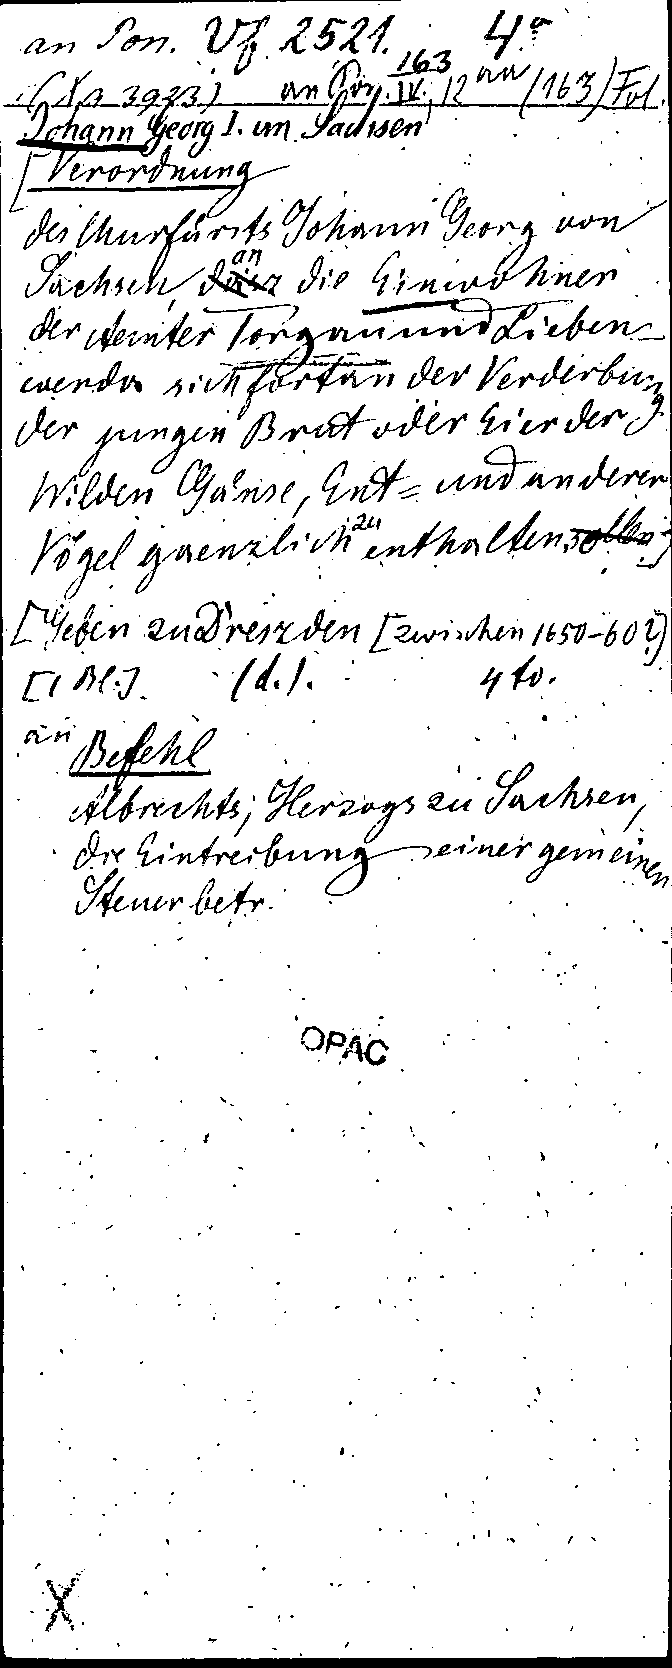 an Pon. Vf. 2521. 4°
163
(Xa 3923.) an IV, 12 an (163) Fol.
Johann Georg I. von Sachsen
[Verordnung
des Churfürsts Johann Georg von
Sachsen, dasz an die Einwohner
der Aemter Torgau und Lieben-
werda sich fortan der Verderbung
der jungen Brut oder Eier der
Wilden Gänse, Ent= und anderer
Vögel gaenzlich zu enthalten sollen]
[Geben zu Dreszden [zwischen 1650-60?]
[1 Bl.]. (d.). 4to.
an Befehl
Albrechts, Herzogs zu Sachsen,
die Eintreibung einer gemeinen
Steuer betr.
OPAC
X